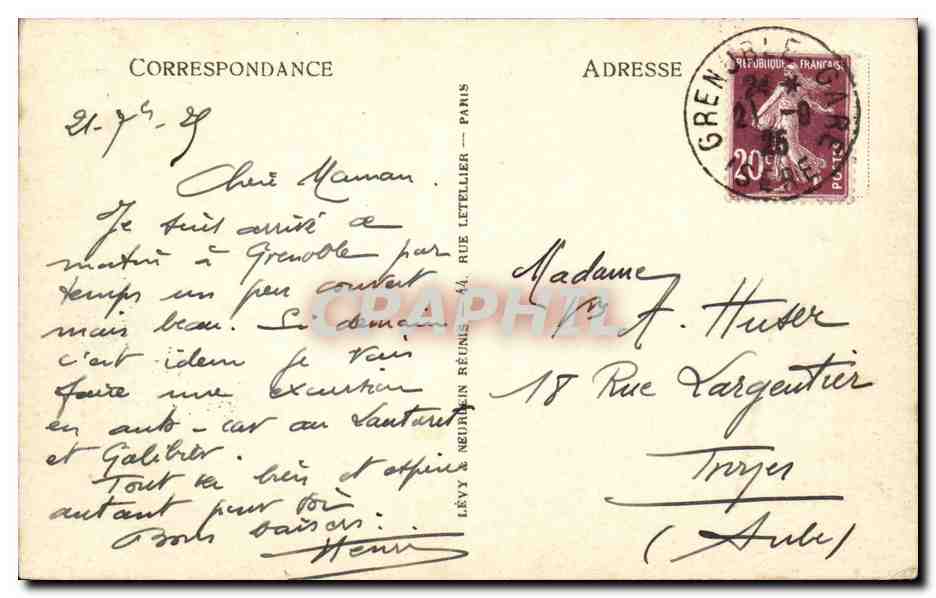 CORRESPONDANCE
21-7bre-25
Chère Maman.
Je suis arrivé ce
matin à Grenoble par
temps un peu couvert
mais beau. Si demain
c'est idem je vais
faire une excursion
en auto-car au Lautaret
et Galibier.
Tout va bien et espère
autant pour toi
Bons baisers.
Henri
LÉVY & NEURDEIN RÉUNIS — 44, RUE LETELLIER — PARIS
ADRESSE
RÉPUBLIQUE FRANÇAISE
20c
POSTES
GRENOBLE GARE
24 *
21 -9
25
ISERE
Madame
Vve A. Huser
18 Rue Largentier
Troyes
(Aube)
CPAPHIL